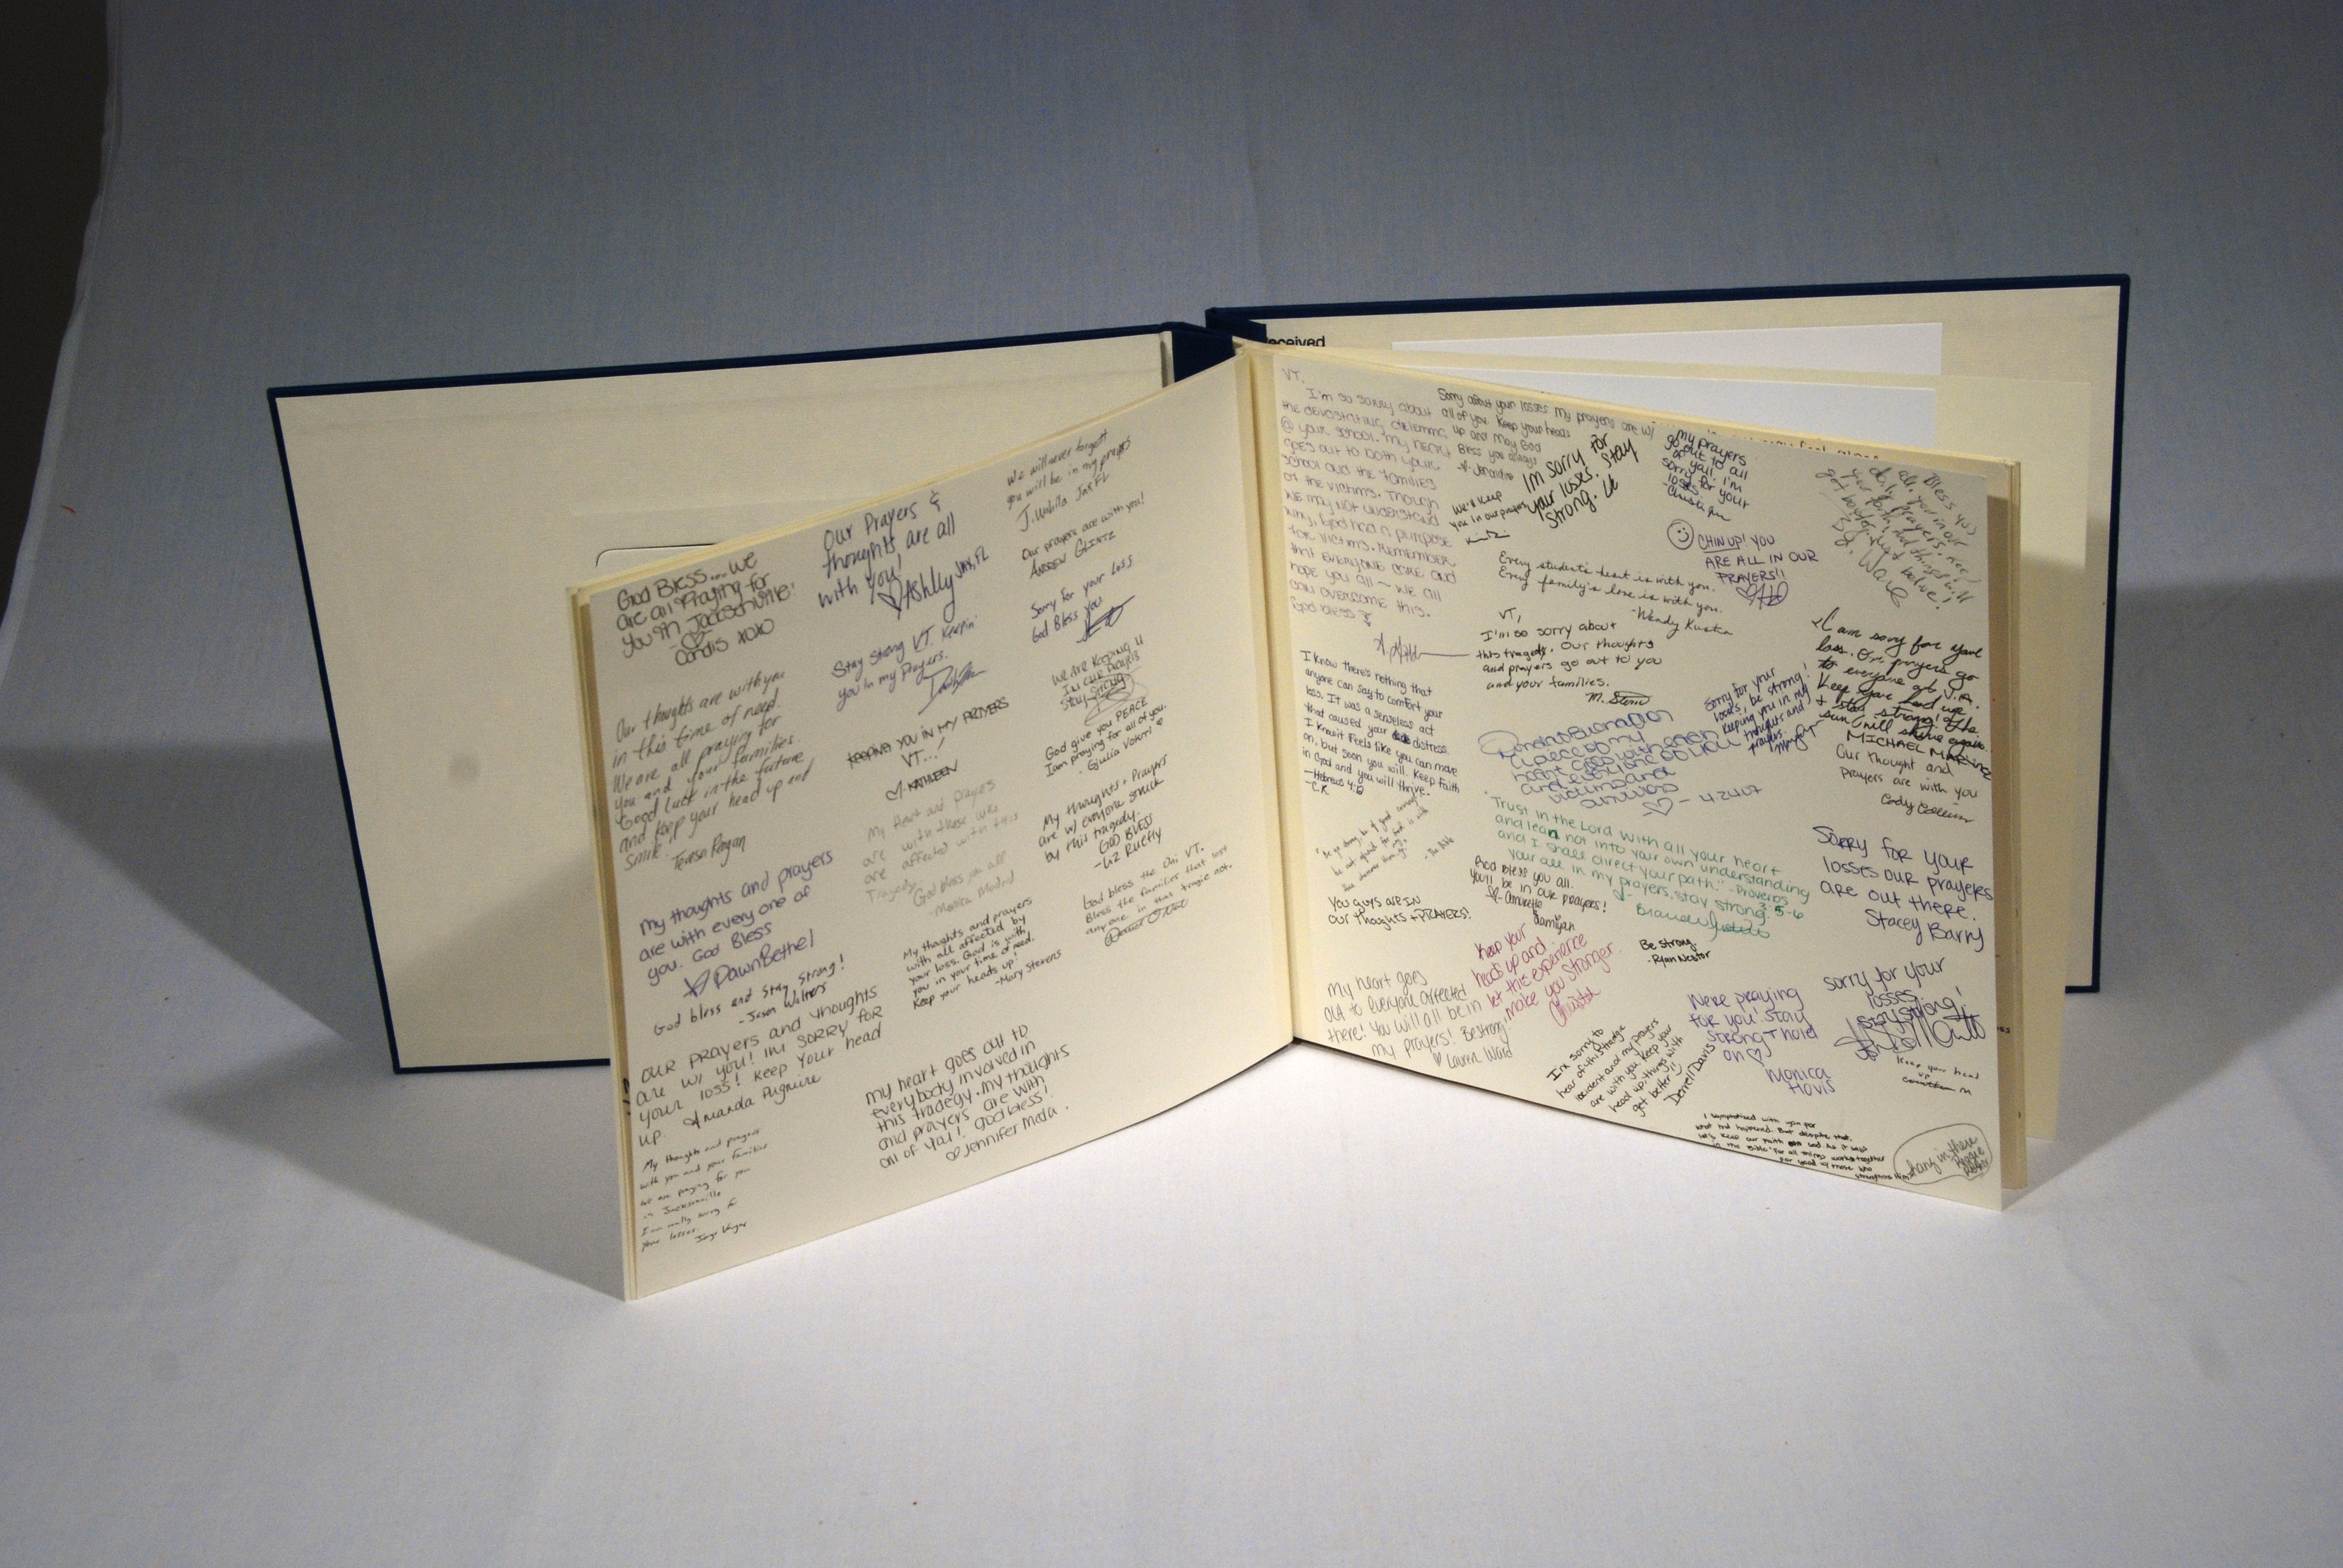 eceived
God Bless... we
are all Praying for
you in Jacksonville!
Candis xoxo
Our thoughts are with you
in this time of need.
We are all praying for
you and your families.
Good luck in the future
and keep your head up and
smile.
Teresa Ragan
My thoughts and prayers
are with every one of
you. God Bless
DawnBethel
God bless and stay strong!
- Jason Walters
OUR PRayers and thoughts
are w/ you! IM SORRY FOR
your loss! Keep your head
up. Amanda
My thoughts and prayers
with you and your families
we are praying for you
in Jacksonville
I am really sorry for
your losses.
Our Prayers &
thoughts are all
with you!
Ashlly JAX, FL
Stay Strong VT. Keepin'
you in my prayers.
KEEPING YOU IN MY PRAYERS
VT...!
- KATHLEEN
My Heart and prayers
are with those who
are affected with this
Tragedy.
God bless you all
- Monica Madrid
My thoughts and prayers
with all affected by
your loss. God is with
you in your time of need.
Keep your heads up!
- Mary Stevens
my heart goes out to
everybody involved in
this tradegy. my thoughts
and prayers are with
all of you! god bless!
Jennifer Mata.
We will never forget
you will be in my prayers
Jax FL
Our prayers are with you!
ANDREW GLINTZ
Sorry for your Loss
God Bless you
We Are Keeping U
In our Prayers
Stay Strong
God give you PEACE
I am praying for all of you.
- Giulia
My thoughts + Prayers
are w/ everyone struck
by this tragedy
GOD BLESS
- Liz Ruefly
God bless the VT.
Bless the families that lost
anyone in that tragic act.
VT,
I'm so sorry about
the devastating dilemma
@ your school. My heart
goes out to both your
school and the families
of the victims. Though
we may not understand
why, God had a purpose
for victims. Remember
that everyone care and
hope you all ~ we all
can overcome this.
God bless
I know there's nothing that
anyone can say to comfort your
loss. It was a senseless act
that caused your distress.
I know it feels like you can move
on, but soon you will. Keep faith
in God and you will thrive.
- Hebrews 4:
- C.K.
YOU GUYS ARE IN
OUR THOUGHTS + PRAYERS!
My heart goes
out to everyone affected
there! You will all be in
my prayers! Be strong.
Lauren Ward
Sorry about your losses My prayers are w/
all of you. Keep your heads
up and May God
Bless you always
We'll keep
you in our prayers
IM SORRY FOR
your losses. Stay
Strong.
my prayers
go out to all
of yall. I'm
sorry for your
loses.
CHIN UP! YOU
ARE ALL IN OUR
PRAYERS!!
Every student's heart is with you.
Every family's love is with you.
- Wendy
VT,
I'm so sorry about
this tragedy. Our thoughts
and prayers go out to you
and your families.
Sorry for your
loses, be strong!
Keeping you in my
thoughts and
prayers.
a piece of my
heart goes with each
and every one of you
victims and
survivors
- 4.24.07
"Trust in the Lord with all your heart
and lean not into your own understanding
and I shall direct your path." - Proverbs 3:5-6
your all in my prayers, stay strong.
God bless you all.
You'll be in our prayers!
- Annette
Damiyah
Keep your
heads up and
let this experience
make you stronger.
Be strong.
- Ryan Nestor
We're praying
for you! Stay
strong + hold
on
Monica
Hovis
I'm sorry to
hear of this tradge
incident and my prayers
are with you keep your
head up things with
get better!!
Derrell Davis
God Bless You
I am sorry for your
loss. Our prayers go
to everyone at V.A.
Keep your head up
& stay strong! The
sun will shine again.
MICHAEL MARTINEZ
Our thought and
prayers are with you
Cody
SORRY FOR YOUR
losses our prayers
are out there.
Stacey Barry
sorry for your
losses
stay strong!
keep your head
up
I sympathized with you for
what had happened. But despite that,
lets keep our faith and as it says
in the Bible "For all things works together
for good
hang in there